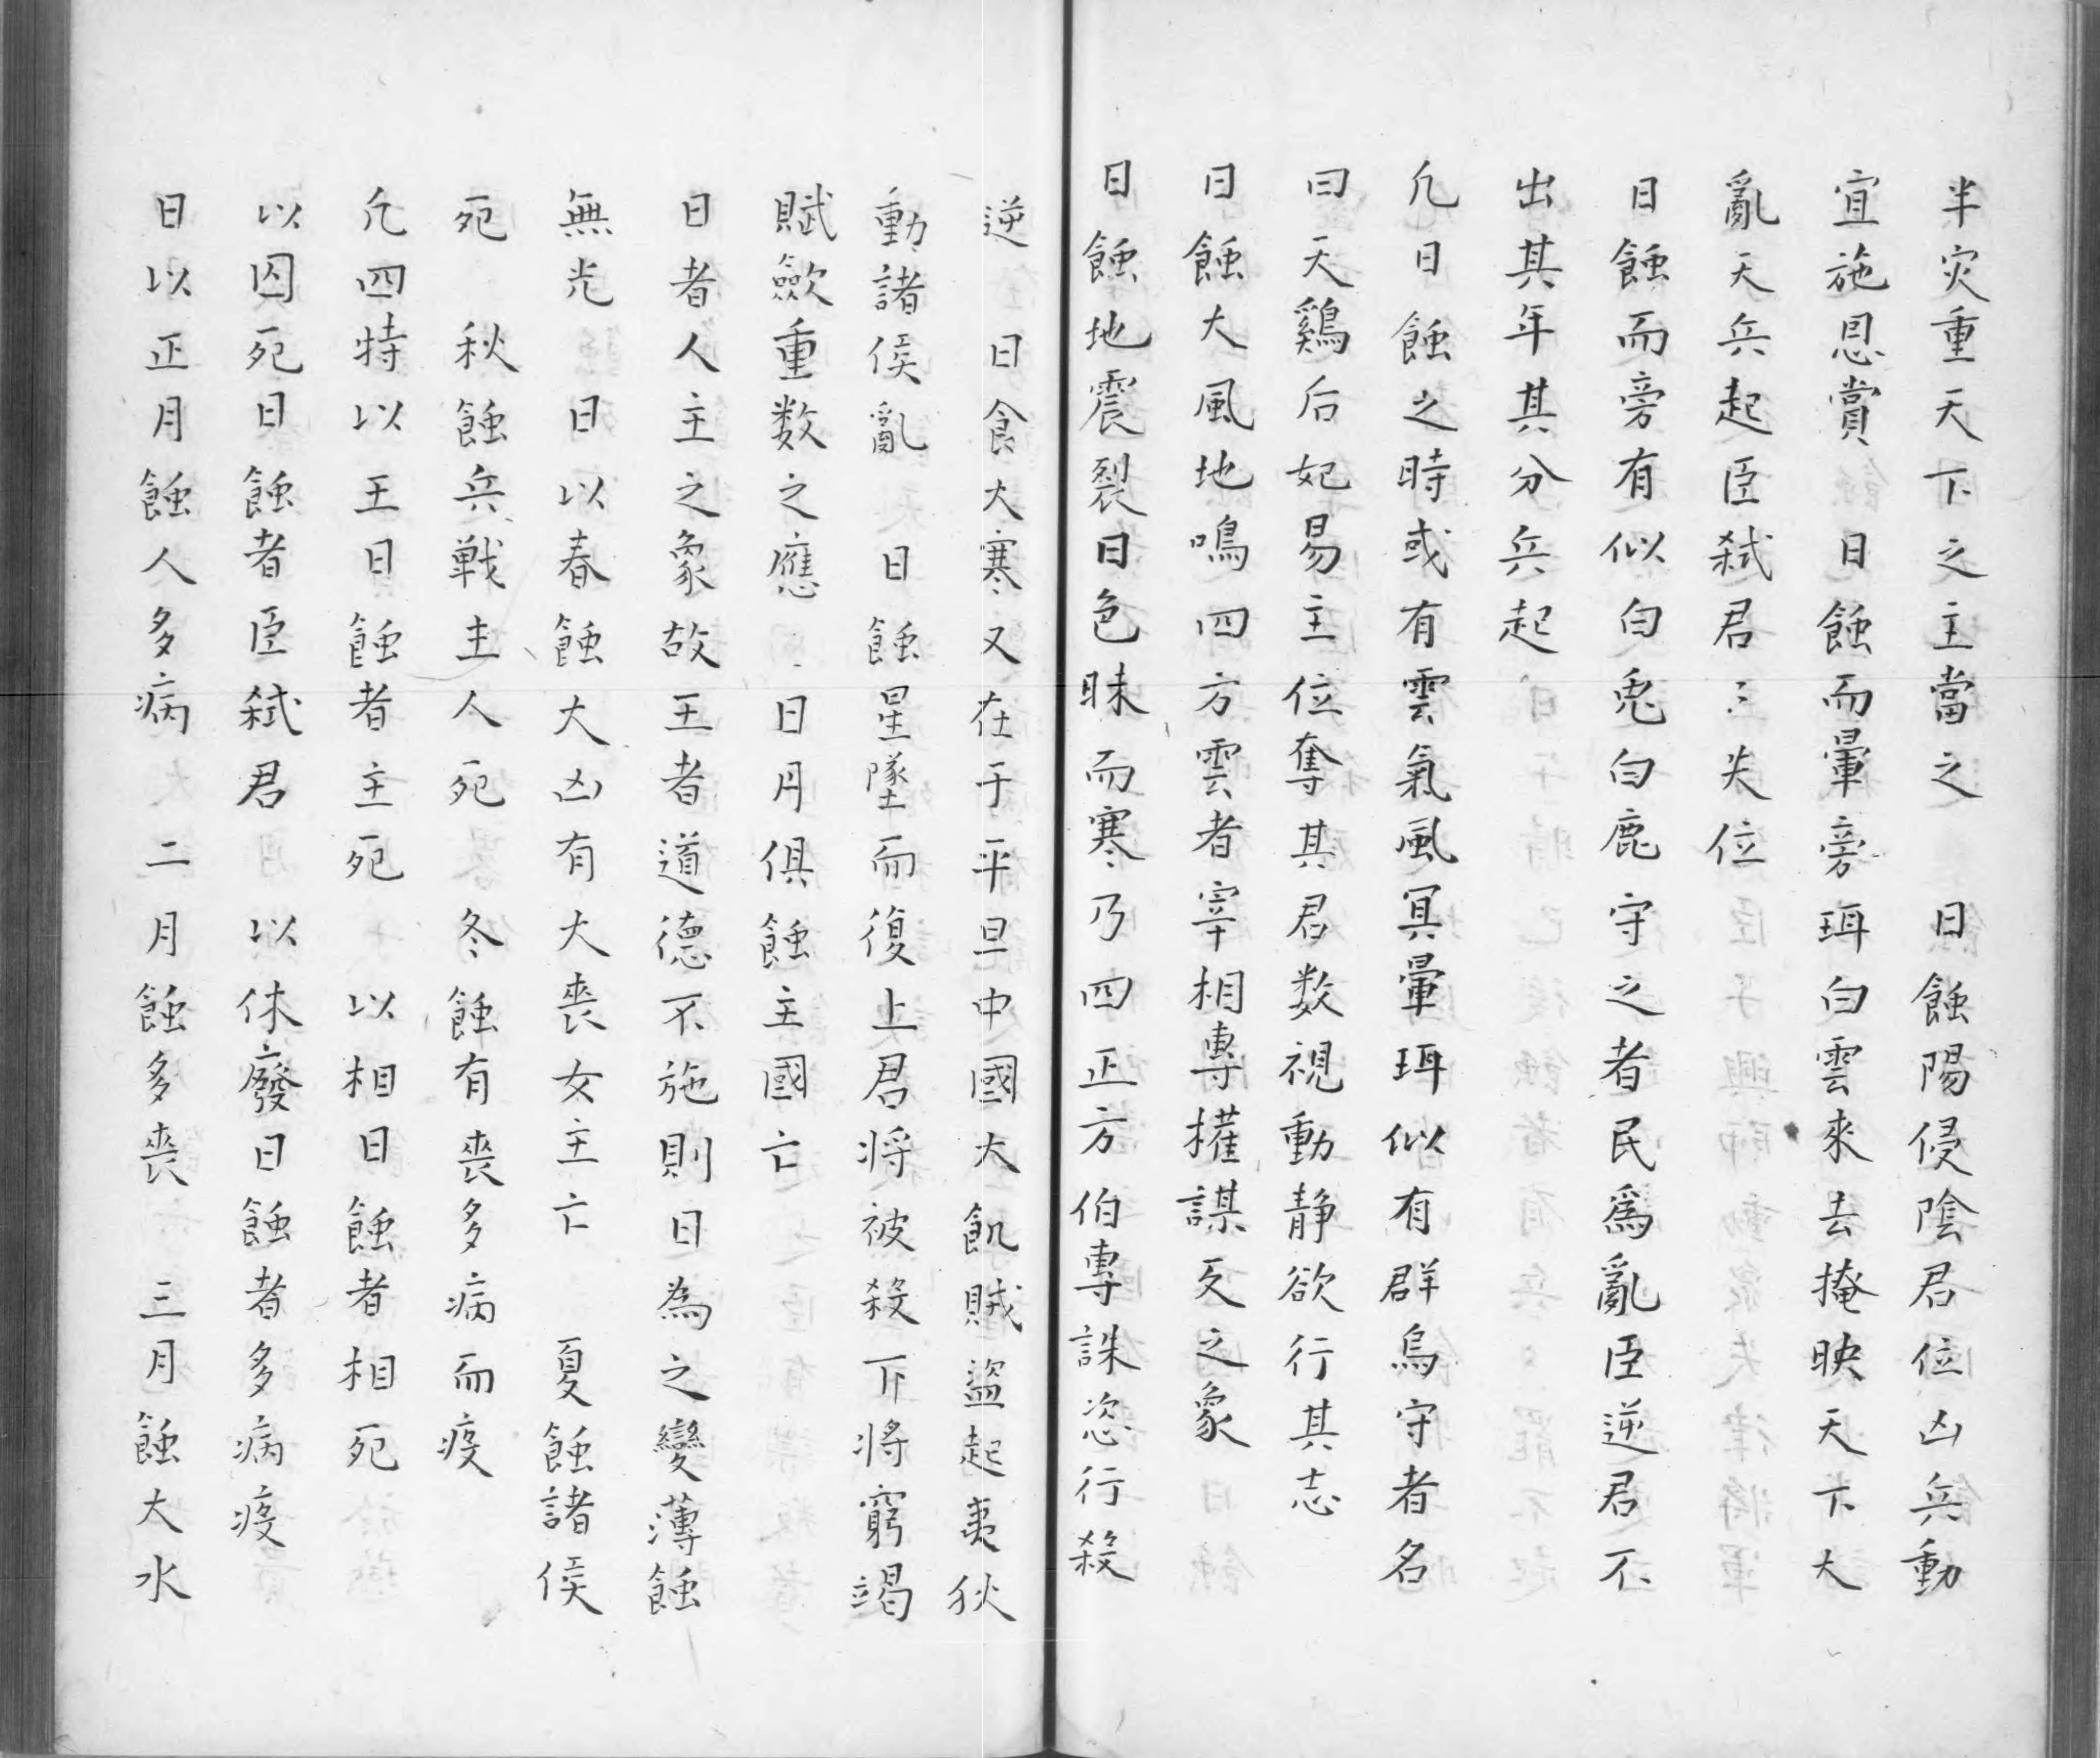 半灾重天下之主當之　日蝕陽侵陰君位凶兵動
宜施恩賞　日蝕而暈旁珥白雲來去掩映天下大
亂天兵起臣弒君〻失位
日蝕而旁有似白兎白鹿守之者民爲亂臣逆君不
出其年其分兵起
凢日蝕之時或有雲氣風冥暈珥似有群烏守者名
曰天鷄后妃易主位奪其君数視動静欲行其志
日蝕大風地鳴四方雲者宰相專權謀反之象
日蝕地震裂日色昧而寒乃四正方伯專誅恣行殺
逆　日食大寒又在于平旦中國大飢賊盜起夷狄
動諸侯亂　日蝕星墜而復上君将被殺下将窮竭
賦歛重数之應　日月俱蝕主國亡
日者人主之象故王者道德不施則日為之變薄蝕
無光　日以春蝕大凶有大喪女主亡　夏蝕諸侯
死　秋蝕兵戦主人死　冬蝕有喪多病而疫
凢四特以王日蝕者主死　以相日蝕者相死
以囚死日蝕者臣弒君　以休廢日蝕者多病疫
日以正月蝕人多病　二月蝕多喪　三月蝕大水